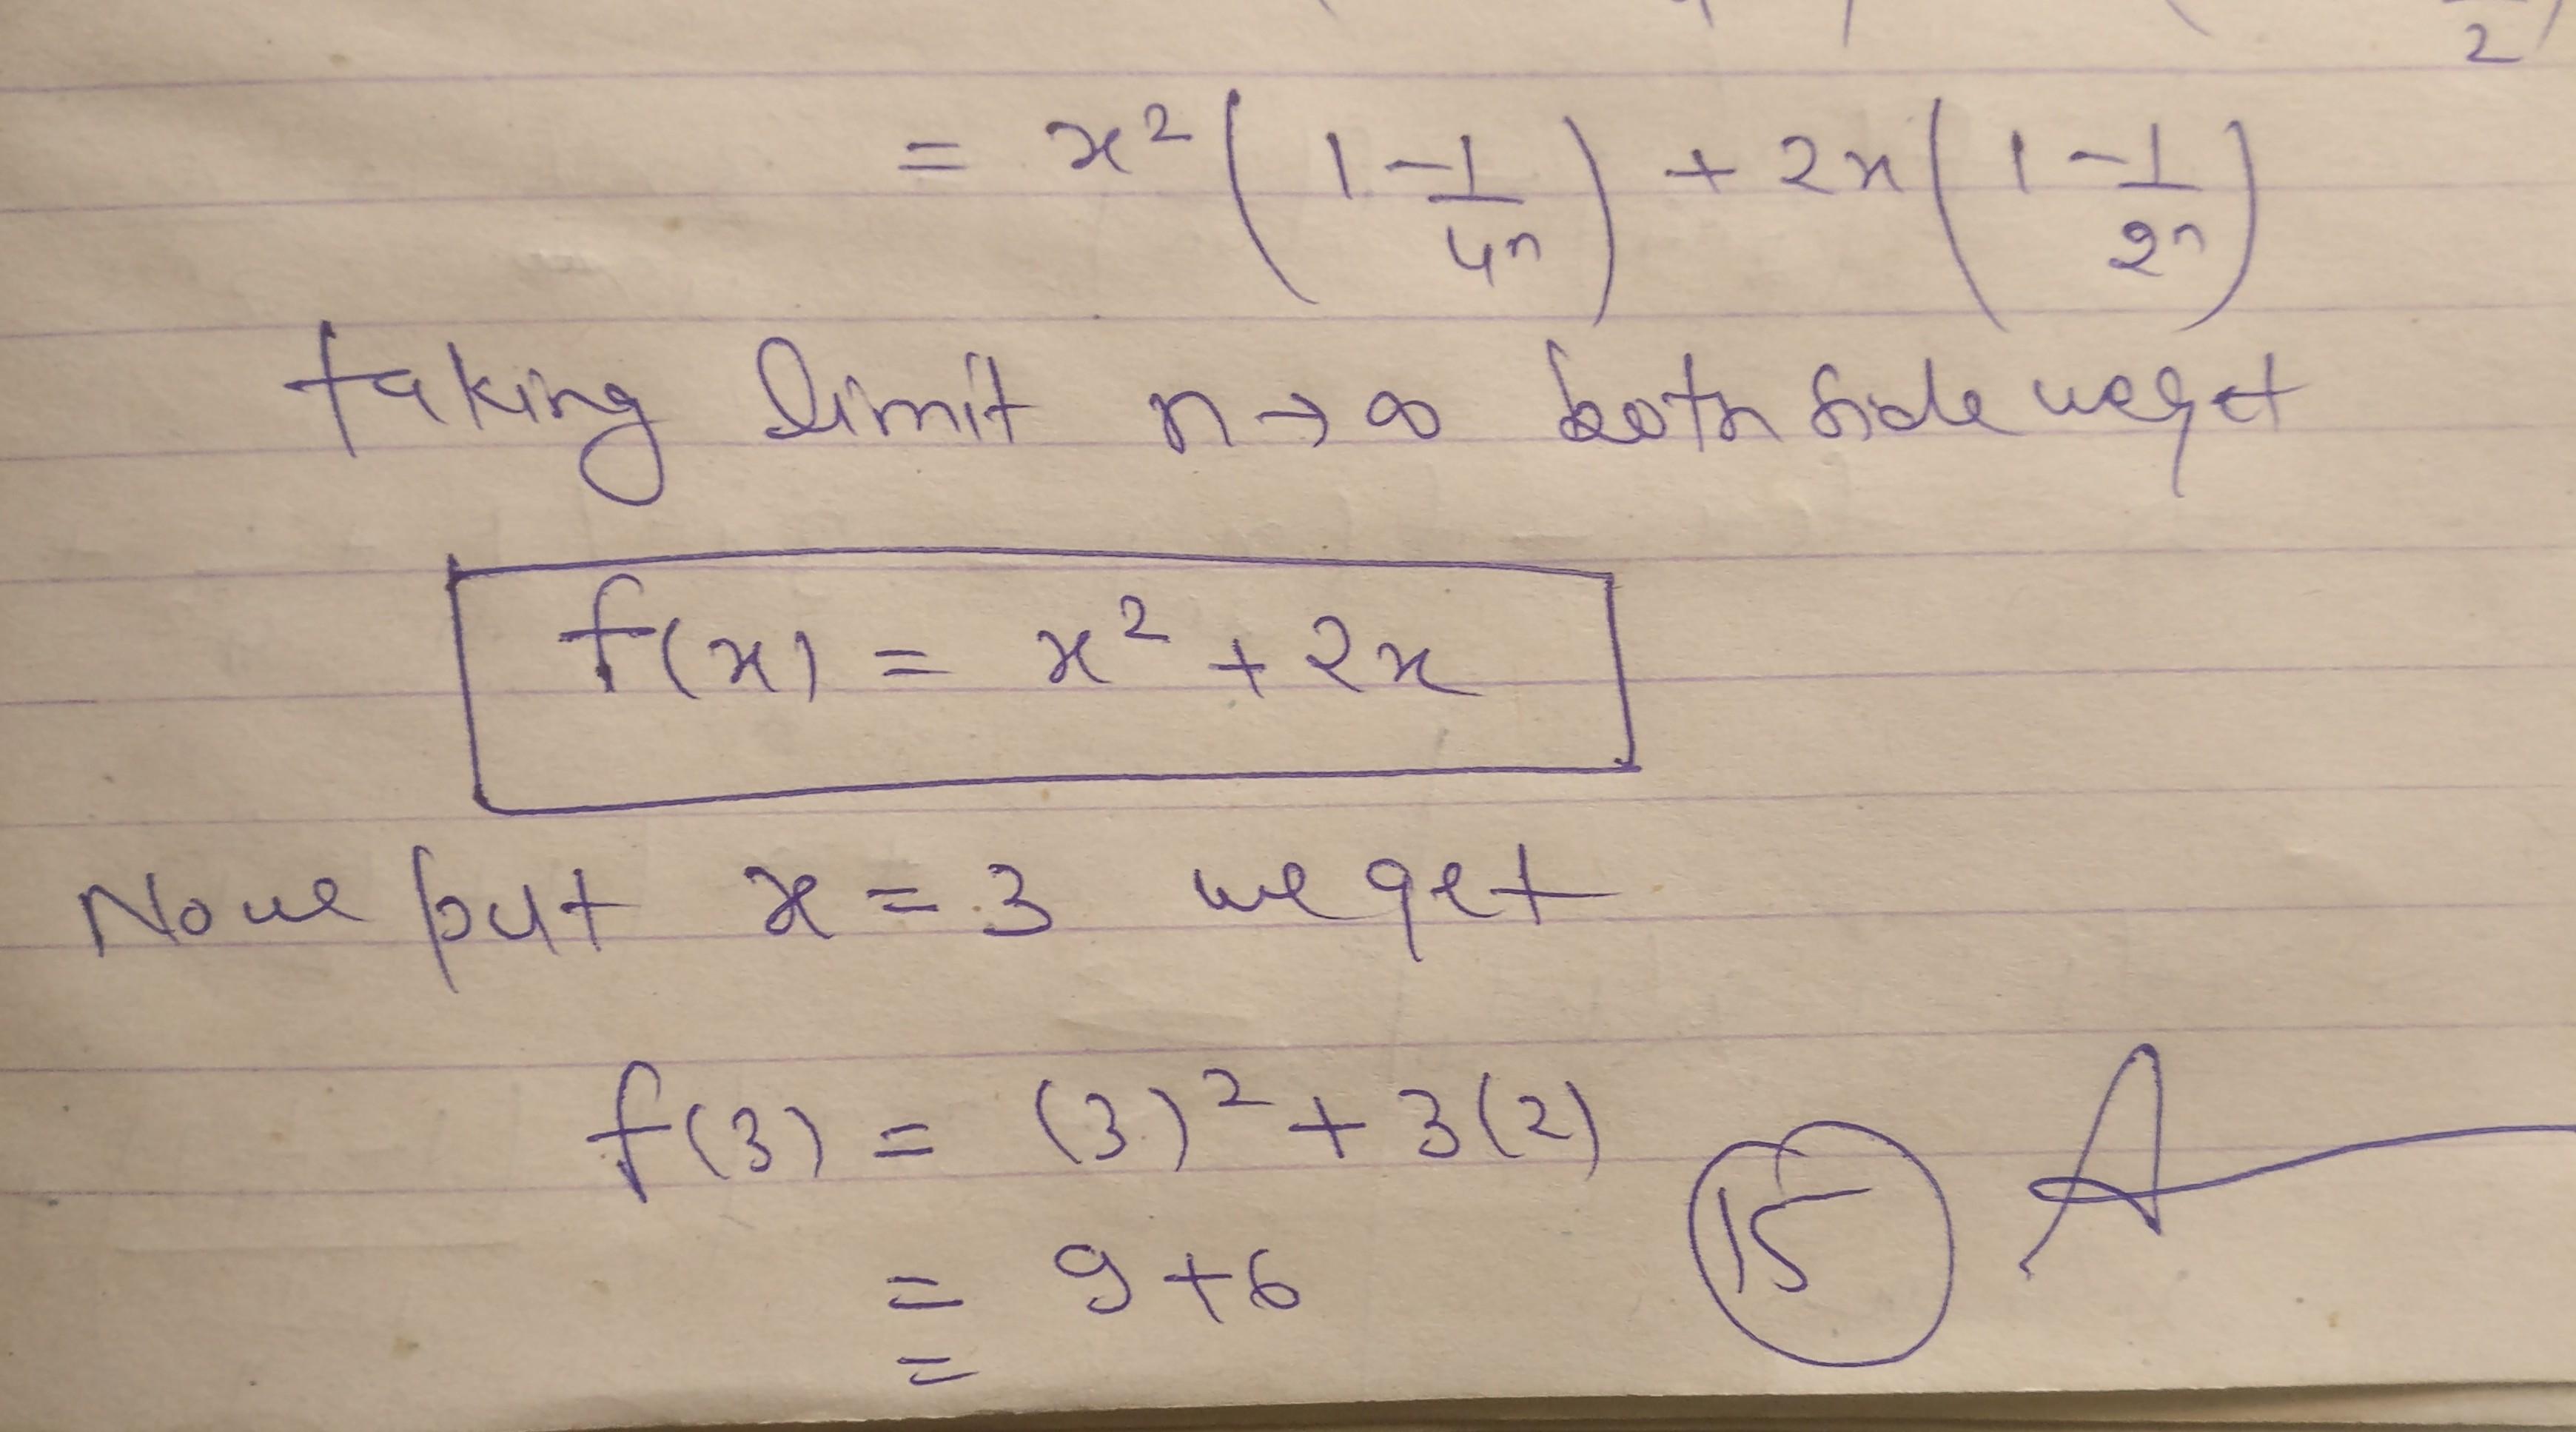 2
= x² ( 1 - 1/4ⁿ ) + 2x ( 1 - 1/2ⁿ )
taking limit n → ∞ both side we get
f(x) = x² + 2x
Now put x = 3 we get
f(3) = (3)² + 3(2)
= 9 + 6
= 15 A